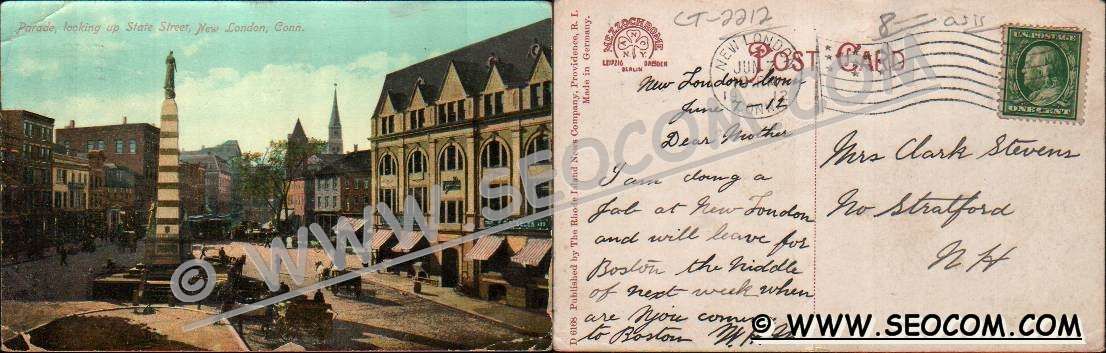 Parade, looking up State Street, New London, Conn.
© WWW.SEOCOM.COM
CT-2212
MEZZOCHROME
LEIPZIG BERLIN DRESDEN
D 6168 Published by The Rhode Island News Company, Providence, R. I.
Made in Germany.
POST CARD
NEW LONDON
JUN
12
CONN.
U.S. POSTAGE
ONE CENT
New London Conn
June 12
Dear Mother
I am doing a
Job at New London
and will leave for
Boston the Middle
of next week when
are you coming
to Boston
Mrs Clark Stevens
No Stratford
N H
© WWW.SEOCOM.COM